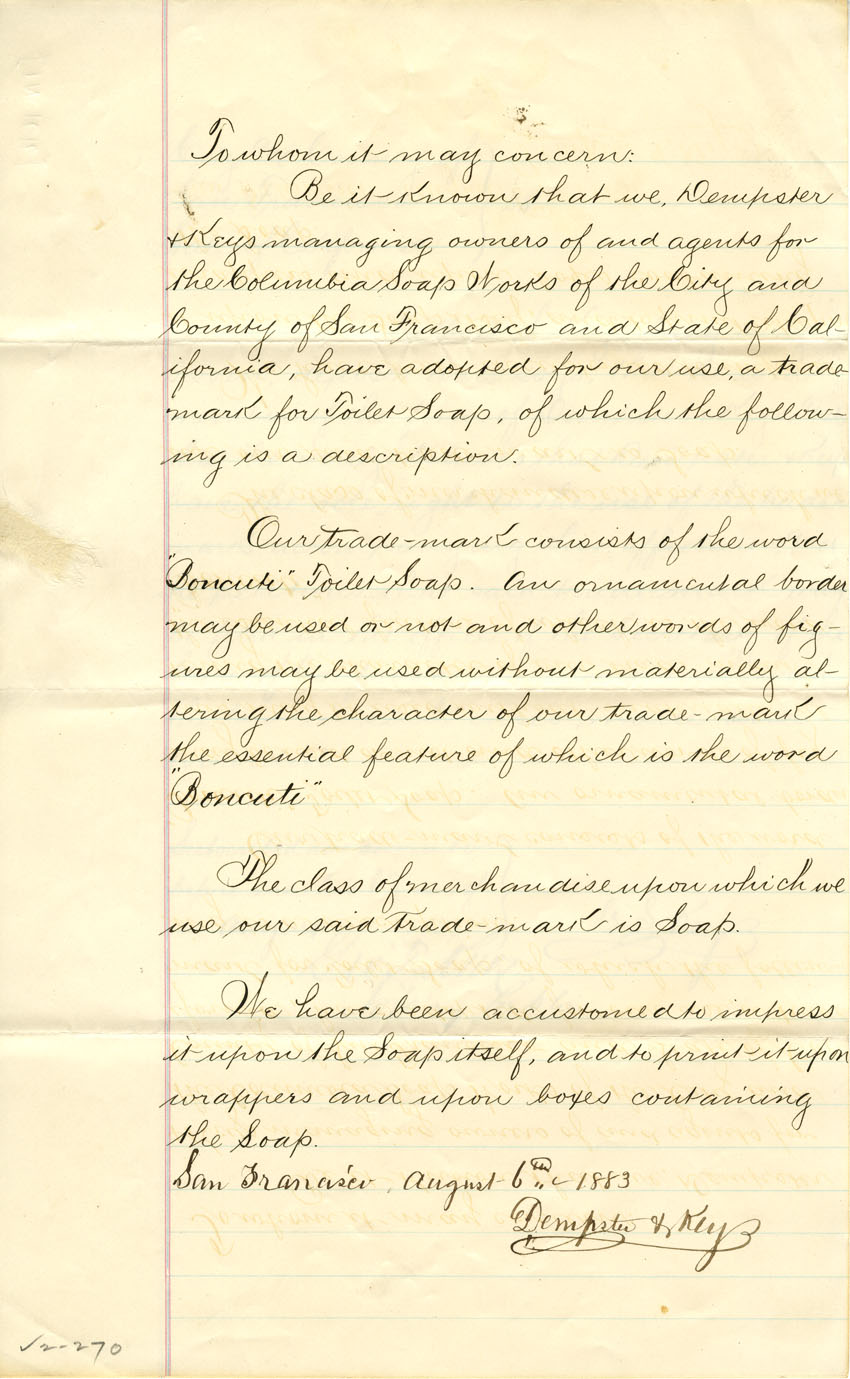 To whom it may concern:
Be it known that we, Dempster
& Keys managing owners of and agents for
the Columbia Soap Works of the City and
County of San Francisco and State of Cal-
ifornia, have adopted for our use, a trade
mark for Toilet Soap, of which the follow-
ing is a description.
Our trade-mark consists of the word
"Boncuti" Toilet Soap. An ornamental border
may be used or not and other words of fig-
ures may be used without materially al-
tering the character of our trade-mark
the essential feature of which is the word
"Boncuti"
The class of merchandise upon which we
use our said trade-mark is Soap.
We have been accustomed to impress
it upon the Soap itself, and to print it upon
wrappers and upon boxes containing
the Soap.
San Francisco, August 6th 1883
Dempster & Keys
√2-270